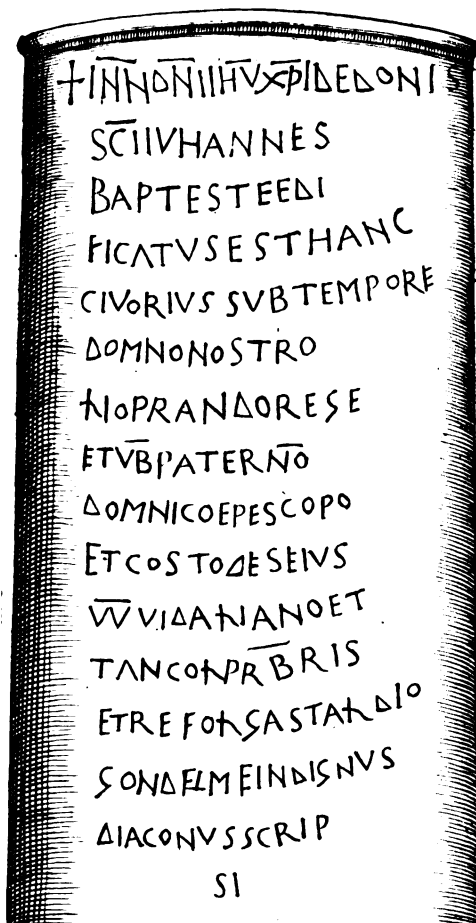 +INNDNIIHVXPIDEDONIS
SCIIVHANNES
BAPTESTEEDI
FICATVSESTHANC
CIVORIVS SVBTEMPORE
DOMNONOSTRO
LIOPRANDOREGE
ETVBPATERNO
DOMNICOEPESCOPO
ETCOSTODESEIVS
VVVIDALIANOET
TANCOLPRBRIS
ETREFOLGASTALDIO
GONDELMEINDIGNVS
DIACONVSSCRIP
SI